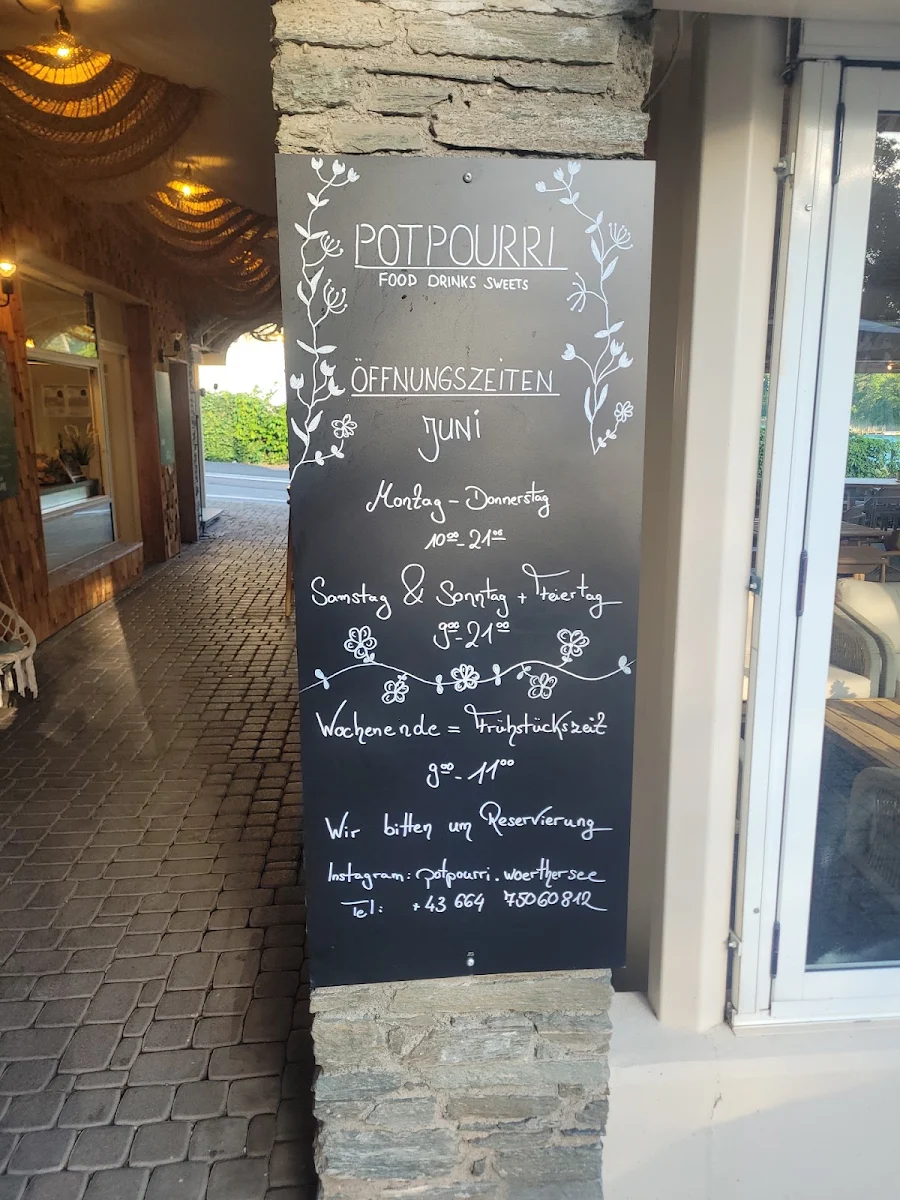 POTPOURRI
FOOD DRINKS SWEETS
ÖFFNUNGSZEITEN
JUNI
Montag - Donnerstag
10⁰⁰- 21⁰⁰
Samstag & Sonntag + Feiertag
9⁰⁰- 21⁰⁰
Wochenende = Frühstückszeit
9⁰⁰ - 11⁰⁰
Wir bitten um Reservierung
Instagram: potpourri.woerthersee
Tel: +43 664 75060812